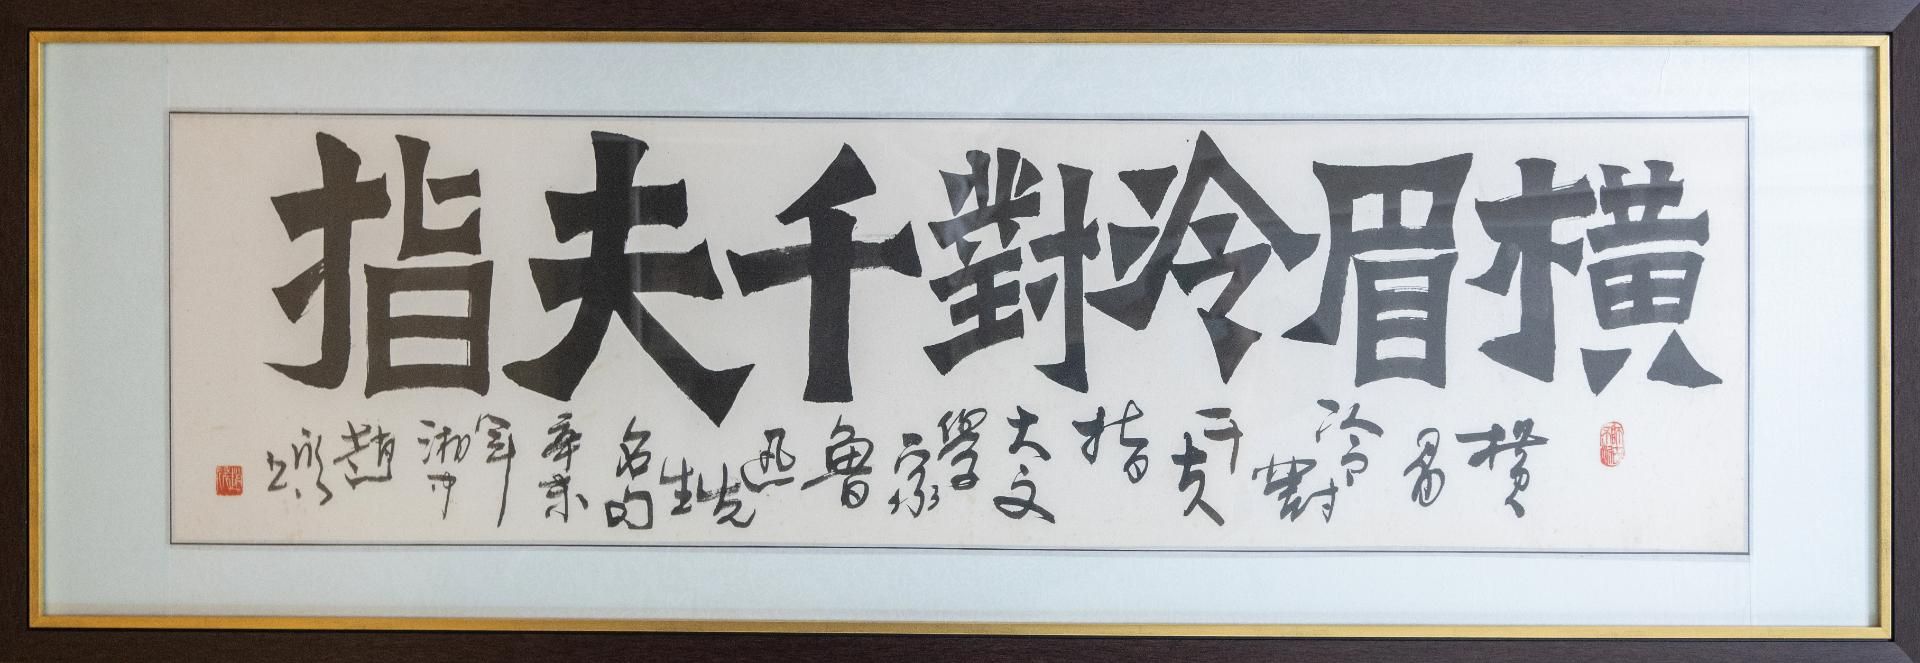 橫眉冷對千夫指
橫眉冷對千夫指大文學家魯迅先生名句辛未年湘中趙